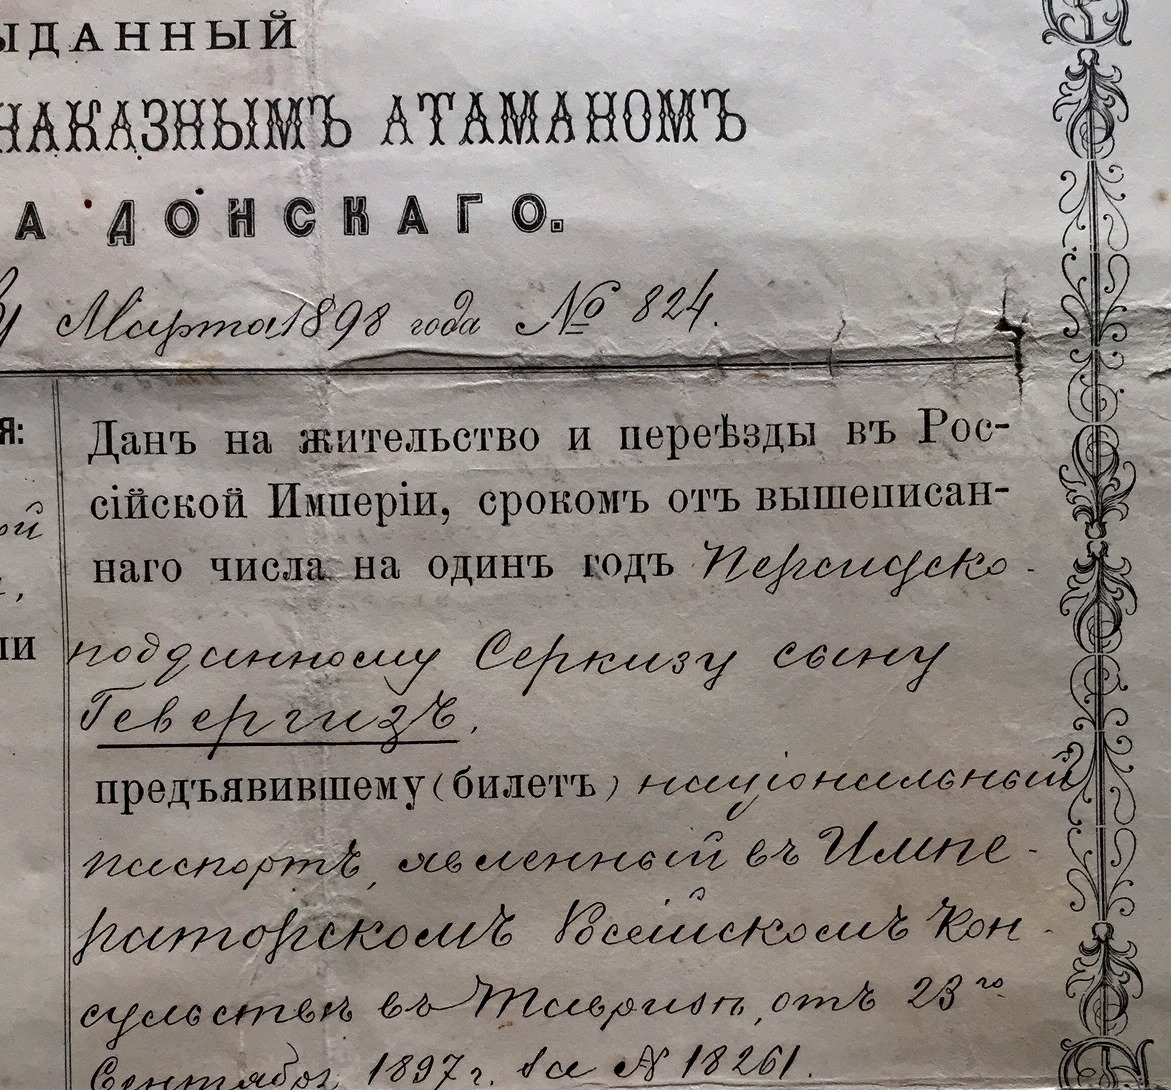 ЫДАННЫЙ
НАКАЗНЫМЪ АТАМАНОМЪ
А ДОНСКАГО.
Марта 1898 года № 824.
Я:
Данъ на жительство и переѣзды въ Рос-
сійской Имперіи, срокомъ отъ вышеписан-
ой
наго числа на одинъ годъ Персидско-
ли
подданному Серкизу сыну
Гевергизъ,
предъявившему (билетъ) націоналльный
паспортъ, явленный въ Импе-
раторскомъ Россійскомъ Кон-
сульствѣ въ Тавризѣ, отъ 23го
Сентября 1897 г. за № 18261.